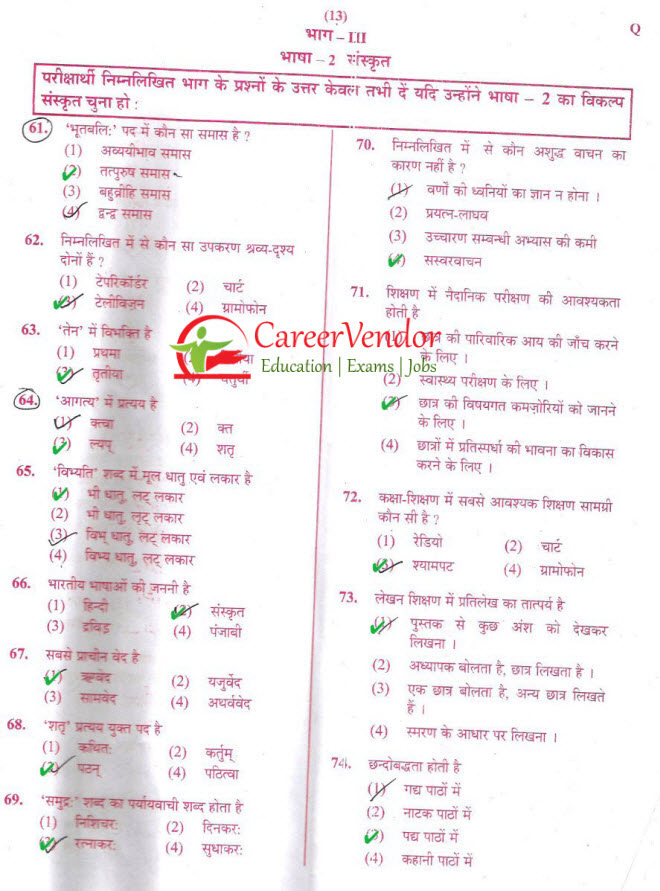 (13)
Q
भाग – III
भाषा – 2 संस्कृत
परीक्षार्थी निम्नलिखित भाग के प्रश्नों के उत्तर केवल तभी दें यदि उन्होंने भाषा – 2 का विकल्प
संस्कृत चुना हो :
61. 'भूतबलिः' पद में कौन सा समास है ?
(1) अव्ययीभाव समास
(2) तत्पुरुष समास
(3) बहुव्रीहि समास
(4) द्वन्द्व समास
62. निम्नलिखित में से कौन सा उपकरण श्रव्य-दृश्य
दोनों हैं ?
(1) टेपरिकॉर्डर (2) चार्ट
(3) टेलीविज़न (4) ग्रामोफोन
63. 'तेन' में विभक्ति है
(1) प्रथमा
(3) तृतीया (4) चतुर्थी
64. 'आगत्य' में प्रत्यय है
(1) क्त्वा (2) क्त
(3) ल्यप् (4) शतृ
65. 'विभ्यति' शब्द में मूल धातु एवं लकार है
(1) भी धातु, लट् लकार
(2) भी धातु, लृट् लकार
(3) विभ् धातु, लेट् लकार
(4) विभ्य धातु, लट् लकार
66. भारतीय भाषाओं की जननी है
(1) हिन्दी (2) संस्कृत
(3) द्रविड़ (4) पंजाबी
67. सबसे प्राचीन वेद है
(1) ऋग्वेद (2) यजुर्वेद
(3) सामवेद (4) अथर्ववेद
68. 'शतृ' प्रत्यय युक्त पद है
(1) कथितः (2) कर्तुम्
(3) पठन् (4) पठित्वा
69. 'समुद्रः' शब्द का पर्यायवाची शब्द होता है
(1) निशिचरः (2) दिनकरः
(3) रत्नाकरः (4) सुधाकरः
CareerVendor
Education | Exams | Jobs
70. निम्नलिखित में से कौन अशुद्ध वाचन का
कारण नहीं है ?
(1) वर्णों की ध्वनियों का ज्ञान न होना ।
(2) प्रयत्न-लाघव
(3) उच्चारण सम्बन्धी अभ्यास की कमी
(4) सस्वरवाचन
71. शिक्षण में नैदानिक परीक्षण की आवश्यकता
होती है
छात्र की पारिवारिक आय की जाँच करने
के लिए ।
(2) स्वास्थ्य परीक्षण के लिए ।
(3) छात्र की विषयगत कमज़ोरियों को जानने
के लिए ।
(4) छात्रों में प्रतिस्पर्धा की भावना का विकास
करने के लिए ।
72. कक्षा-शिक्षण में सबसे आवश्यक शिक्षण सामग्री
कौन सी है ?
(1) रेडियो (2) चार्ट
(3) श्यामपट (4) ग्रामोफोन
73. लेखन शिक्षण में प्रतिलेख का तात्पर्य है
(1) पुस्तक से कुछ अंश को देखकर
लिखना ।
(2) अध्यापक बोलता है, छात्र लिखता है ।
(3) एक छात्र बोलता है, अन्य छात्र लिखते
हैं ।
(4) स्मरण के आधार पर लिखना ।
74. छन्दोबद्धता होती है
(1) गद्य पाठों में
(2) नाटक पाठों में
(3) पद्य पाठों में
(4) कहानी पाठों में